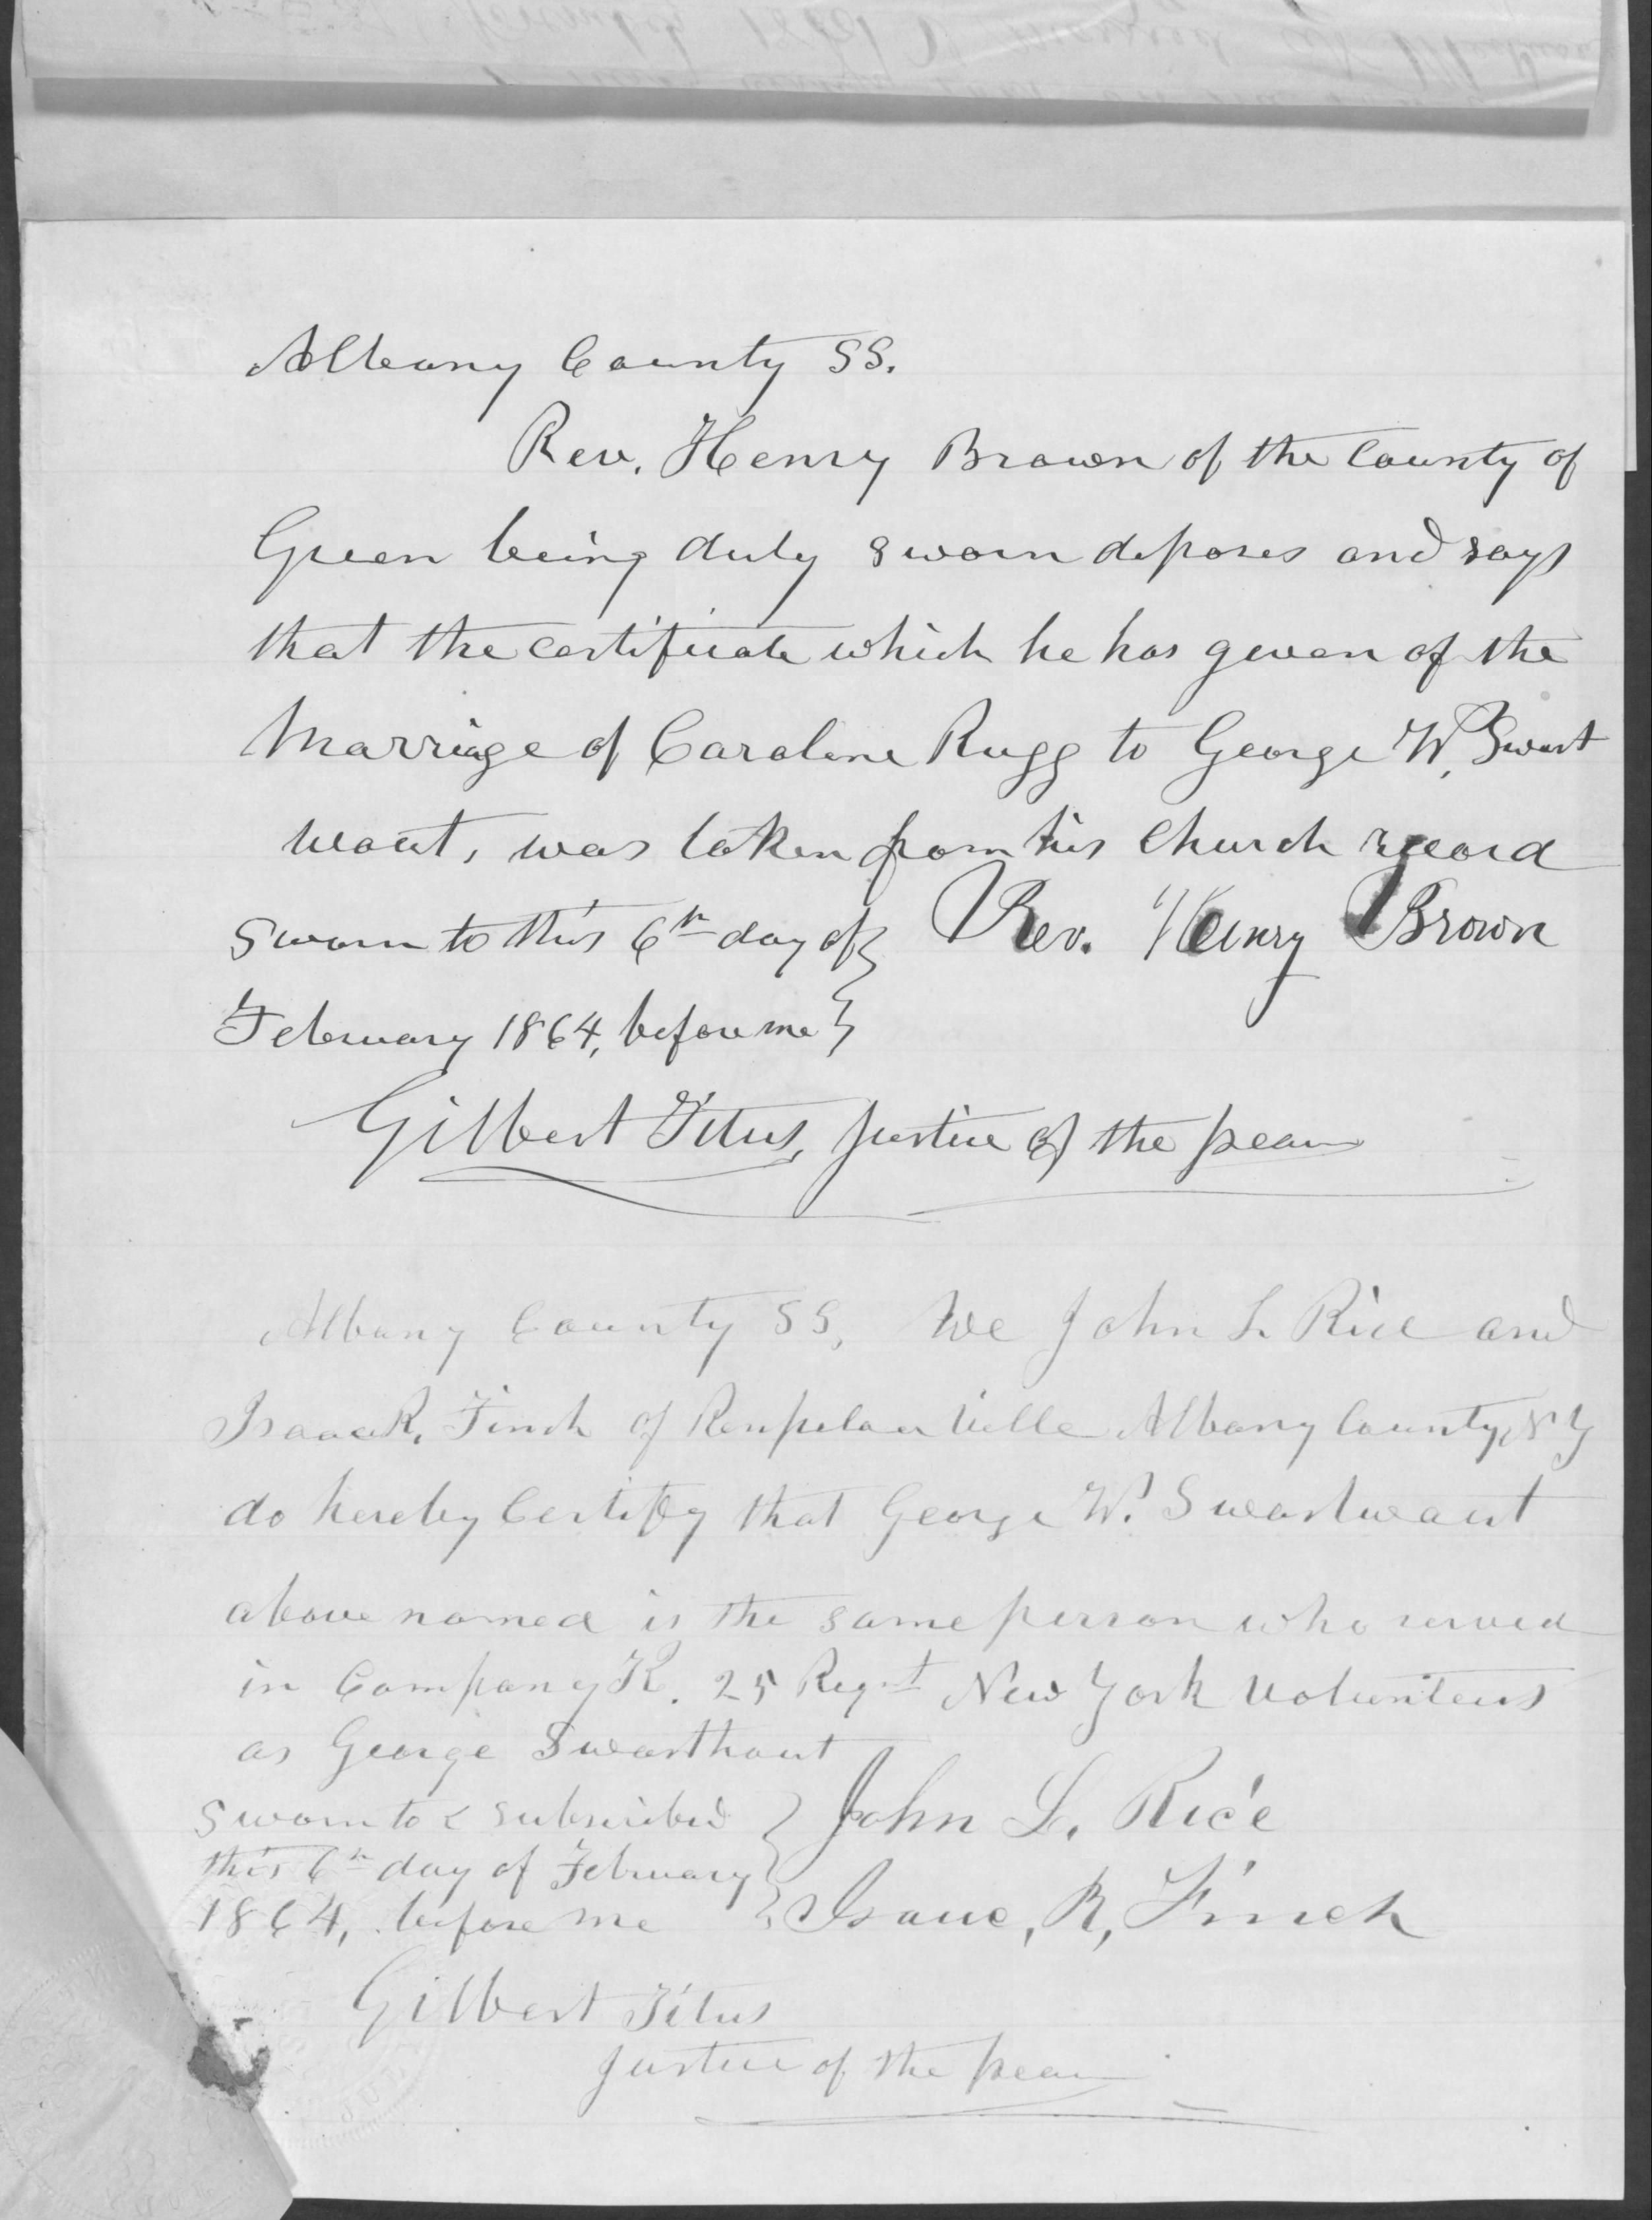 Albany County SS.
Rev. Henry Brown of the County of
Green being duly sworn deposes and says
that the certificate which he has given of the
Marriage of Caroline Rugg to George W. Swart
wout, was taken from his Church record
Sworn to this 6th day of } Rev. Henry Brown
February 1864, before me }
Gilbert Titus, Justice of the peace
Albany County SS, We John L. Rice and
Isaac R. Finch of Renselaerville Albany County, N Y
do hereby Certify that George W. Swartwout
above named is the same person who served
in Company K. 25 Regt New York Volunteers
as George Swarthout
Sworn to & subscribed } John L. Rice
this 6th day of February }
1864, before me } Isaac, R, Finch
Gilbert Titus
Justice of the peace